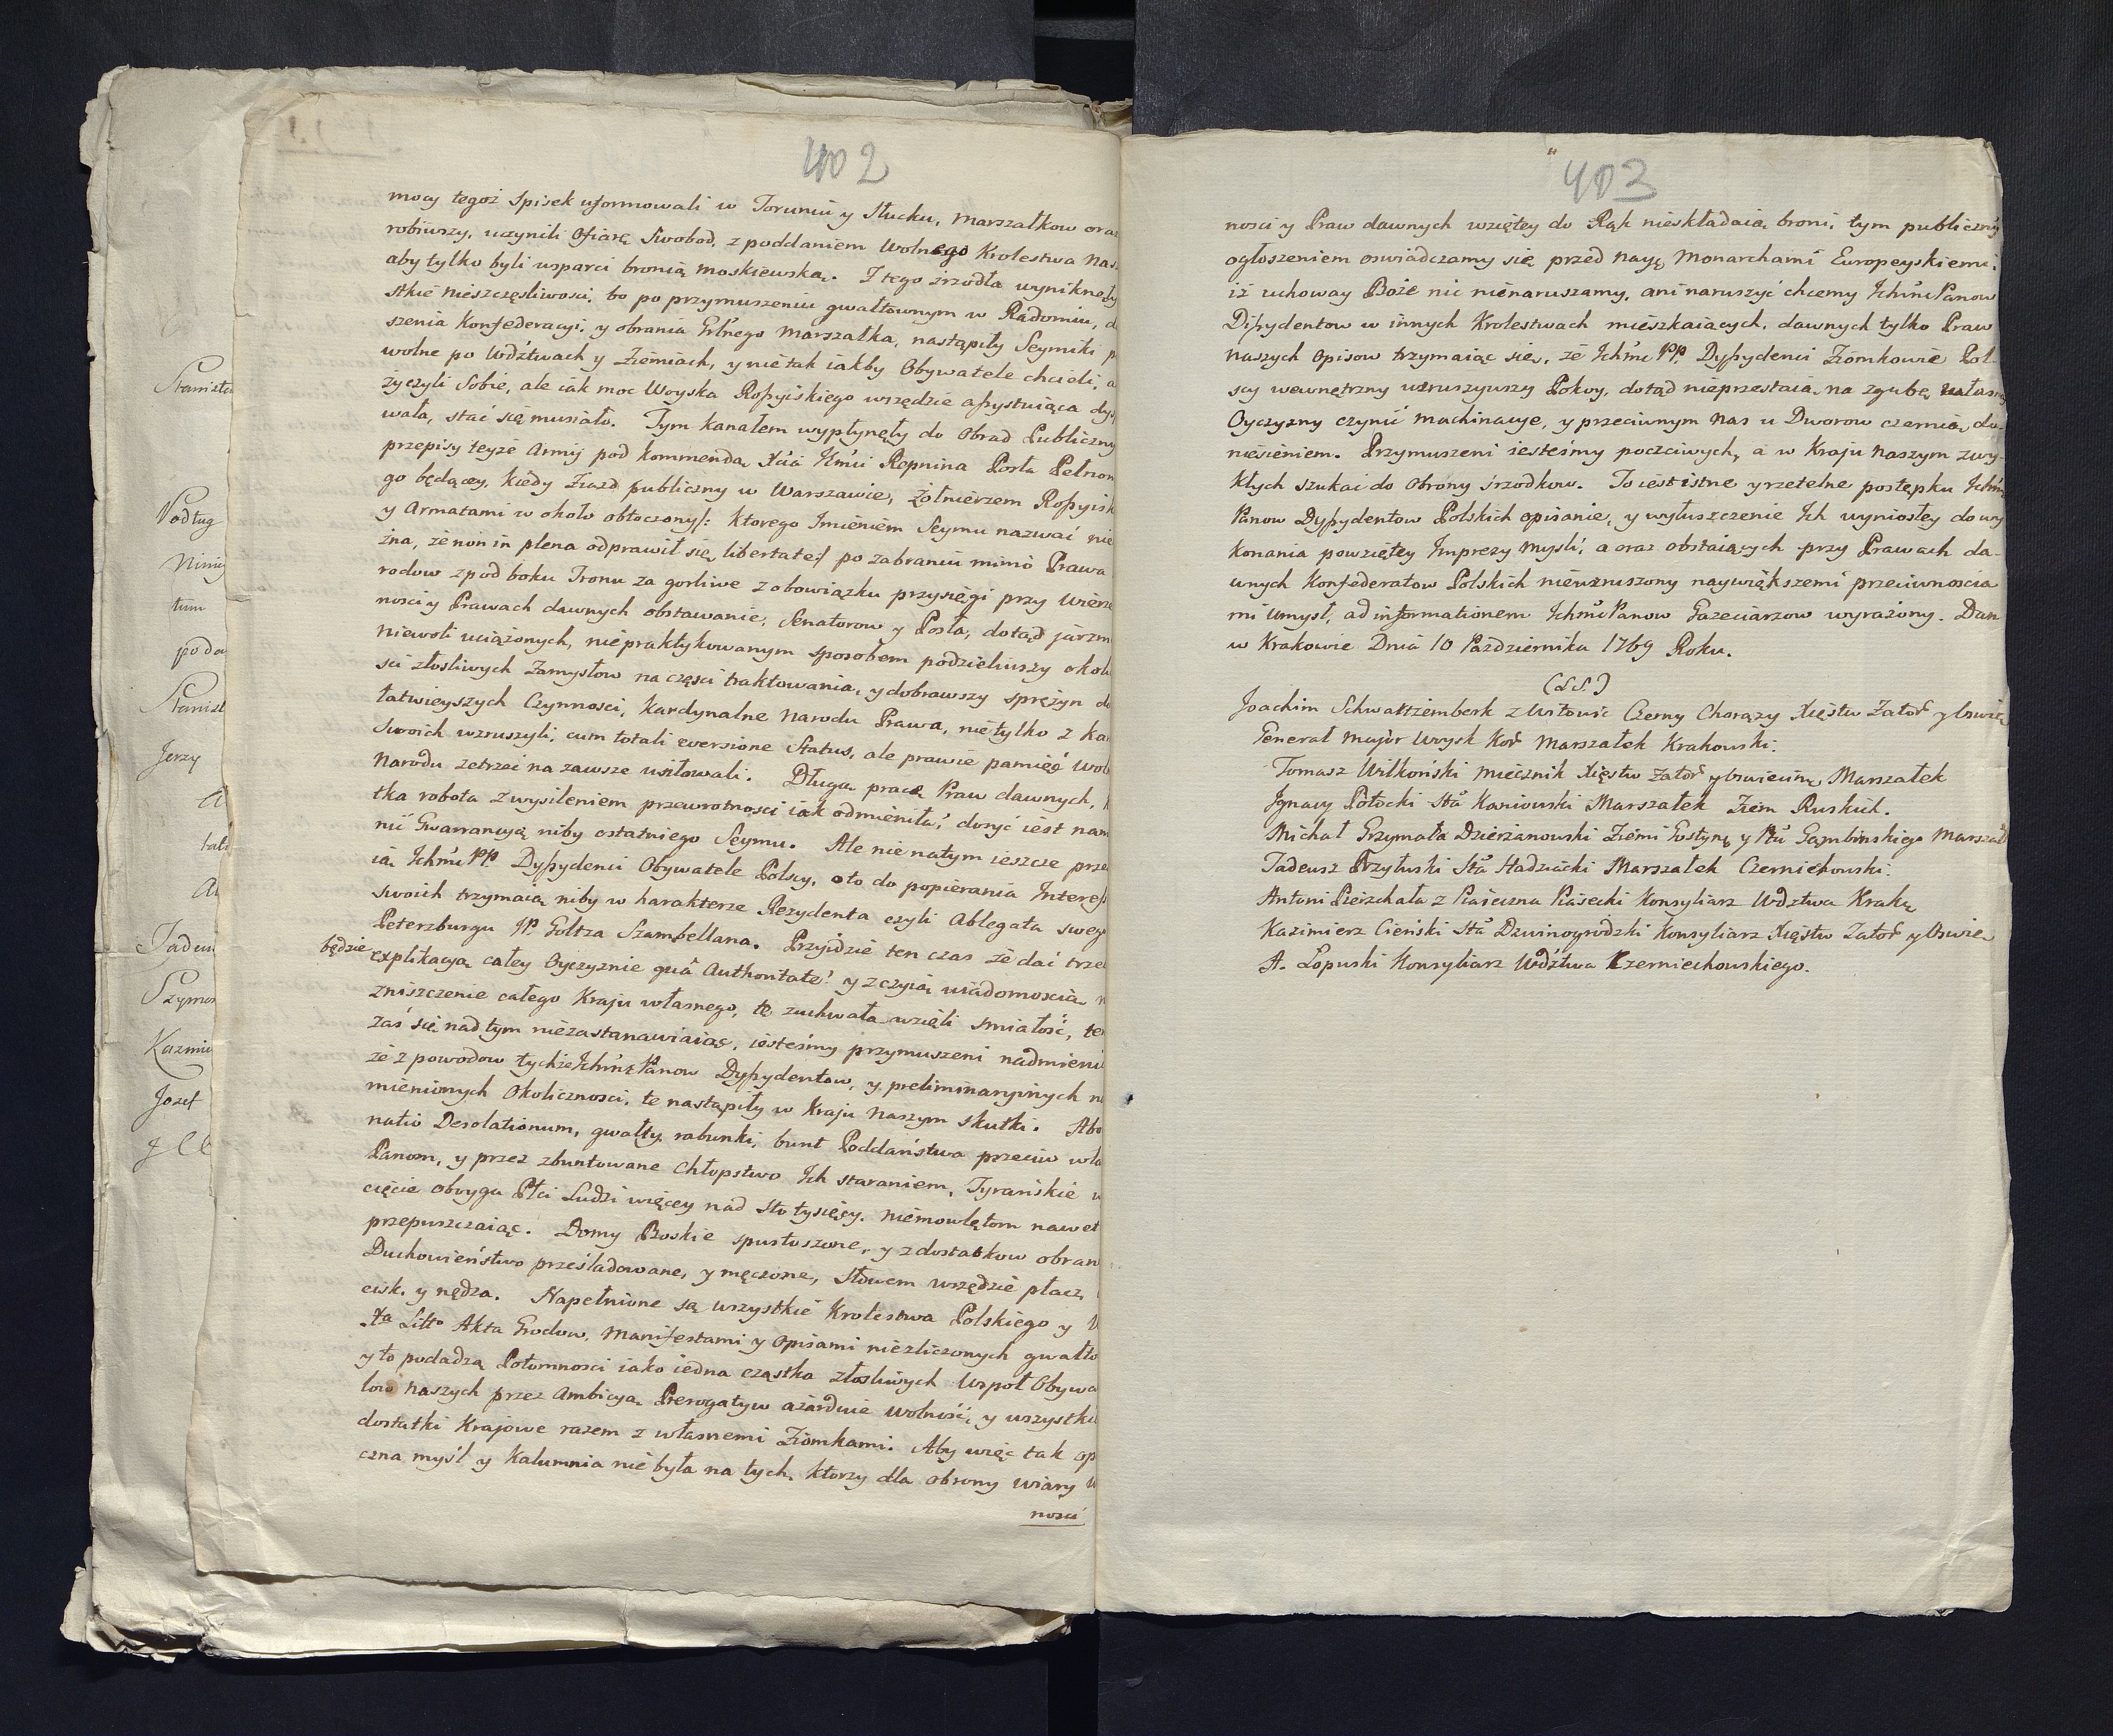 Stanisła
Podług
Niniey
tum
poda
Stanisł
Jerzy
Tadeu
Szymon
Kazmi
Jozef
402
mocy tegoż Spisek uformowali w Toruniu y Słucku, Marszałkow oraz
robiwszy, uczynili Ofiarę Swobod, z poddaniem Wolnego Krolestwa Nas
aby tylko byli wsparci bronią Moskiewską. Z tego zrzodła wyniknęły
stkie Nieszczęsliwosci, bo po przymuszeniu gwałtownym w Radomiu, d
szenia Konfederacyi, y obrania Grlnego Marszałka, nastąpiły Seymiki p
wolne po Wdztwach y Ziemiach, y nie tak iakby Obywatele chcieli, a
życzyli Sobie, ale iak moc Woyska Rossyiskiego wszędzie assystuiąca dys
wała, stać się musiało. Tym kanałem wypłynęły do Obrad Publiczny
przepisy teyże Armij pod Kommendą Xcia Jmci Repnina Posła Pełnom
go będącey, kiedy Ziazd publiczny w Warszawie, Żołnierzem Rossyisk
y Armatami w około obtoczony/: ktorego Imieniem Seymu nazwać nie
żna, że non in plena odprawił się libertate:/ po zabraniu mimo Prawa
rodow z pod boku Tronu za gorliwe z obowiązku przysięgi przy Wierze
nosci y Prawach dawnych obstawanie, Senatorow y Posła, dotąd jarzm
niewoli uciążonych, niepraktykowanym sposobem podzieliwszy okoli
sci złosliwych Zamysłow na częsci traktowania, y dobrawszy sprężyn do
łatwieyszych Czynnosci, Kardynalne Narodu Prawa, nie tylko z ka
Swoich wzruszyli, cum totali eversione Status, ale prawie pamięć Wol
Narodu zetrzeć na zawsze usiłowali. Długą pracę Praw dawnych,
tka robota z wysileniem przewrotnosci iak odmieniła? dosyć iest nam
nić Gwarancyą niby ostatniego Seymu. Ale nie na tym ieszcze prze
ią Ichmc PP. Dyssydenci Obywatele Polscy, oto do popierania Interess
Swoich trzymaią niby w harakterze Rezydenta czyli Ablegata swego
Petersburgu JP. Goltza Szambellana. Przyidzie ten czas że dać trze
będzie explikacyą całey Oyczyznie quâ Authoritate? y z czyią wiadomoscią n
zniszczenie całego Kraju własnego, tę zuchwałą wzięli smiałość, te
zaś się nad tym niezastanawiaiąc, iesteśmy przymuszeni nadmieni
że z powodow tychże Ichmc Panow Dyssydentow, y preliminaryinych
mienionych Okolicznosci, te nastąpiły w Kraju Naszym skutki. Abo
natio Desolationum, gwałty, rabunki, bunt Poddaństwa przeciw wła
Panom, y przez zbuntowane Chłopstwo Ich staraniem, Tyrańskie w
cięcie oboyga Płci Ludzi więcey nad sto tysięcy, niemowlętom nawet
przepuszczaiąc. Domy Boskie spustoszone, y z dostatkow obran
Duchowieństwo prześladowane, y męczone, Słowem wszędzie płacz,
cisk, y nędza. Napełnione są wszystkie Krolestwa Polskiego y W
Xa Litto Akta Grodow, Manifestami y Opisami niezliczonych gwałto
y to podadzą Potomnosci iako iedna cząstka złosliwych Wspoł Obywa
low Naszych przez Ambicyą Prerogatyw azardwie Wolność, y wszystki
dostatki Krajowe razem z własnemi Ziomkami. Aby więc tak op
czna myśl y Kalumnia nie była na tych, ktorzy dla obrony Wiary W
nosci
403
nosci y Praw dawnych wziętey do Rąk nieskładaią broni, tym publicznym
ogłoszeniem oswiadczamy się przed Nayę Monarchami Europeyskiemi,
iż uchoway Boże nic nienaruszamy, ani naruszyć chcemy Ichmc Panow
Dissydentow w innych Krolestwach mieszkaiących, dawnych tylko Praw
Naszych Opisow trzymaiąc się, że Ichmc PP. Dyssydenci Ziomkowie Pol-
scy wewnętrzny wzruszywszy Pokoy, dotąd nieprzestaią na zgubę własney
Oyczyzny czynić machinacye, y przeciwnym Nas u Dworow czernią do-
niesieniem. Przymuszeni iesteśmy poczciwych, a w Kraju Naszym zwy-
kłych szukać do Obrony srzodkow. To iest istne y rzetelne postępku Ichmc
Panow Dyssydentow Polskich opisanie, y wyłuszczenie Ich wyniosłey do wy
konania powziętey Imprezy Mysli, a oraz obstaiących przy Prawach da-
wnych Konfederatow Polskich niewzruszony naywiększemi przeciwnościa
mi Umysł, ad informationem Ichmc Panow Gazeciarzow wyrażony. Dan
w Krakowie Dnia 10 Pazdziernika 1769 Roku.
(L.S.)
Joachim Schwartzemberk z Witowic Czerny Chorąży Xięstw Zator y Oswię
Generał Major Woysk Kor Marszałek Krakowski.
Tomasz Wilkoński Miecznik Xięstw Zator y Oswiecim, Marszałek
Jgnacy Potocki Sta Kaniowski Marszałek Ziem Ruskich.
Michał Grzymała Dzierżanowski Ziemi Gostynę y Ptu Gąmbinskiego Marszał
Tadeusz Przyłuski Sta Hadziacki Marszałek Czerniehowski.
Antoni Pierzchała z Piaseczna Piasecki Konsyliarz Wdztwa Krakę
Kazimierz Cieński Sta Dzwinogrodzki Konsyliarz Xięstw Zator y Oswię
A. Łopuski Konsyliarz Wdztwa Czerniechowskiego.